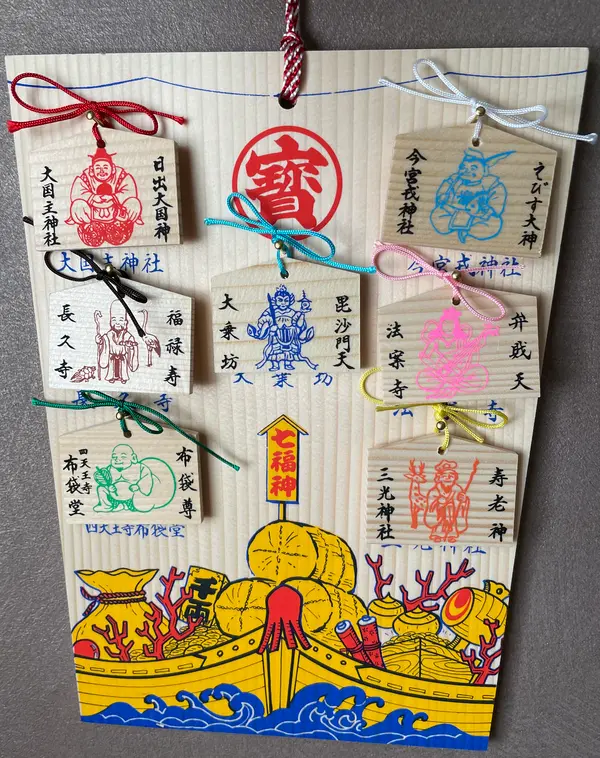 寶
日出大国神
大国主神社
大国主神社
えびす大神
今宮戎神社
今宮戎神社
福禄寿
長久寺
長久寺
毘沙門天
大乗坊
大乗坊
弁戝天
法案寺
法案寺
布袋尊
四天王寺
布袋堂
四天王寺布袋堂
寿老神
三光神社
三光神社
七福神
千両